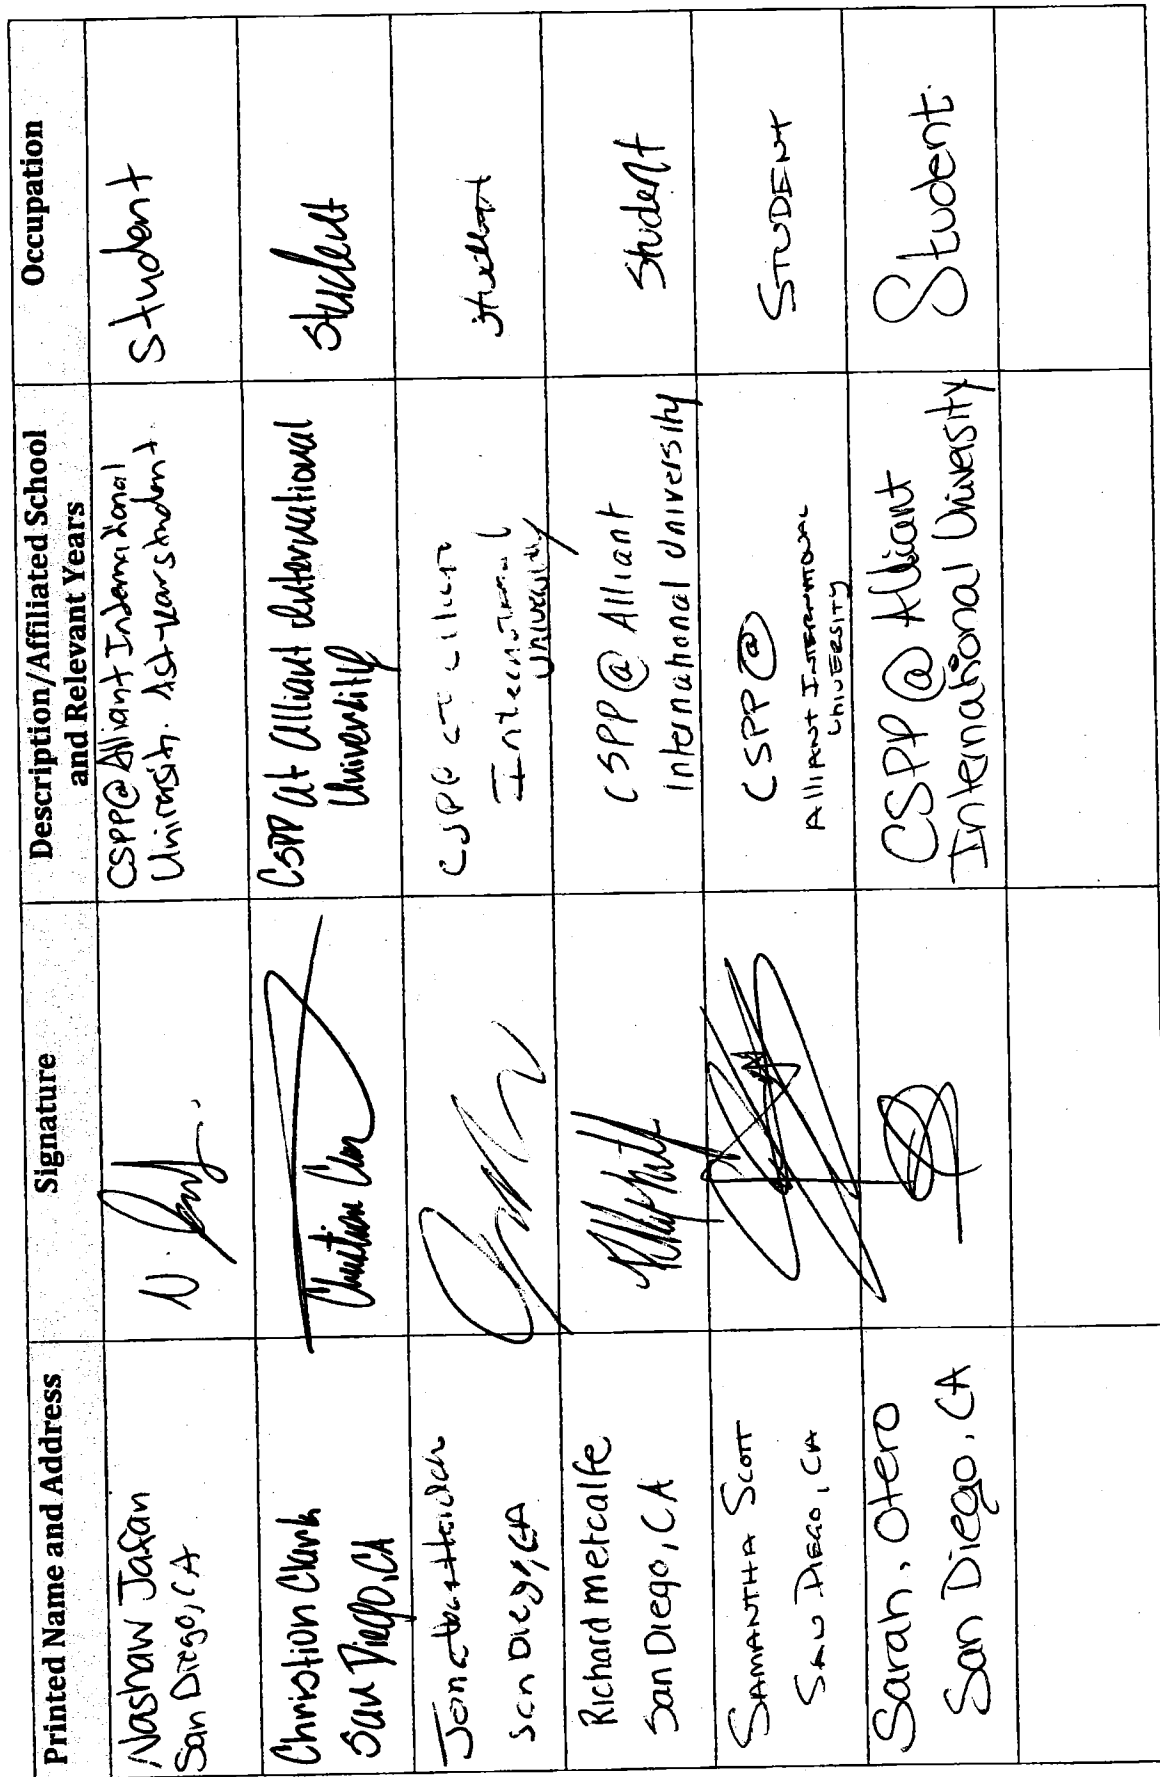 Printed Name and Address
Signature
Description/Affiliated School
and Relevant Years
Occupation
Nashaw Jafan
San Diego, CA
N.
CSPP@Alliant International
University. 1st year student
Student
Christion Clark
San Diego, CA
Christion Clark
CSPP at Alliant International
University
Student
Jonathan
San Diego, CA
CSPP
International
University
student
Richard Metcalfe
San Diego, CA
CSPP @ Alliant
International University
Student
SAMANTHA SCOTT
SAN DIEGO, CA
CSPP @
ALLIANT INTERNATIONAL
UNIVERSITY
STUDENT
Sarah, Otero
San Diego, CA
CSPP @ Alliant
International University
Student.